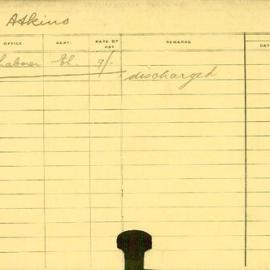 Atkins
OFFICE DEPT. RATE OF PAY REMARKS DAT
Laborer El. 9/-
discharged